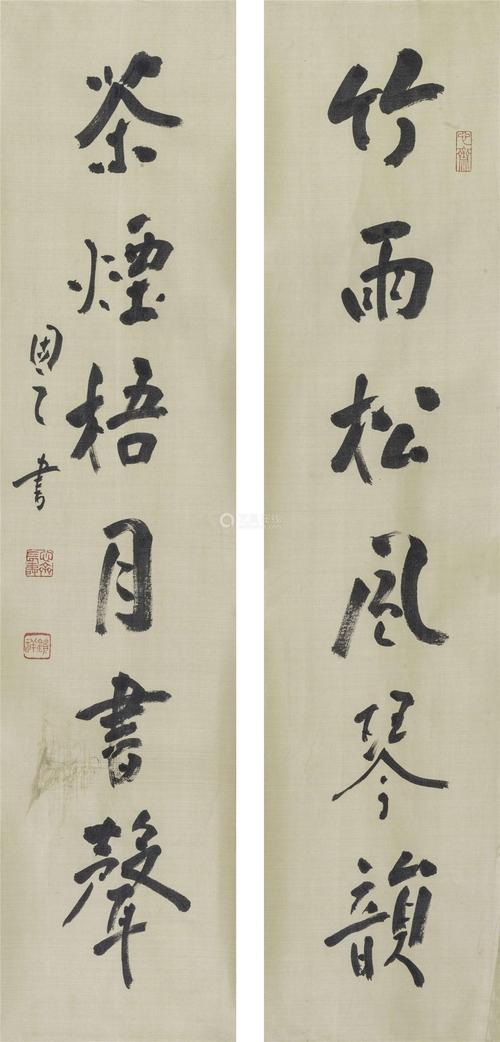 竹雨松风琴韻
茶煙梧月書聲
周了書